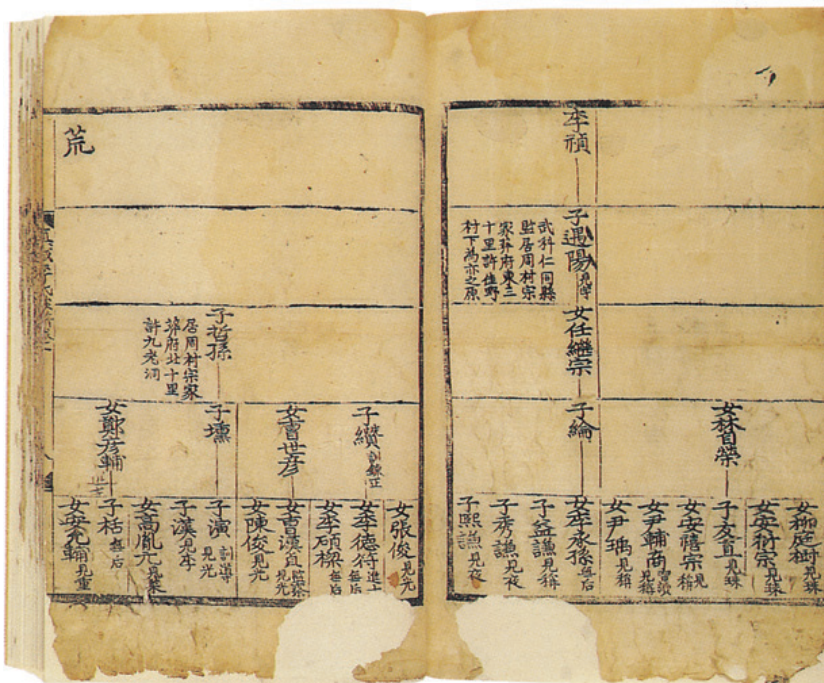 李禎
子遇陽 見宇
武科仁同縣
監居周村宗
家葬府東三
十里許佳野
村下為亦之原
女任繼宗
女林自榮
子綸
女柳庭樹 見珠
女安衍宗 見珠
子友直 見珠
女安禧宗 見稱
女尹輔商 見稱
女尹瑀 見稱
女李永孫 無后
子益謙 見稱
子秀謙 見夜
子熙謙 見夜
荒
子哲孫
居周村宗家
葬府北十里
許九老洞
子纘
女曺世彦
子壎
女鄭彦輔
女張俊 見光
女李德符 進士 無后
女李碩樑 無后
女曺漢貞 見光
女陳俊 見光
子演 訓導 見光
子漢 見李
女高胤元
子栝 無后
女安克輔 見重